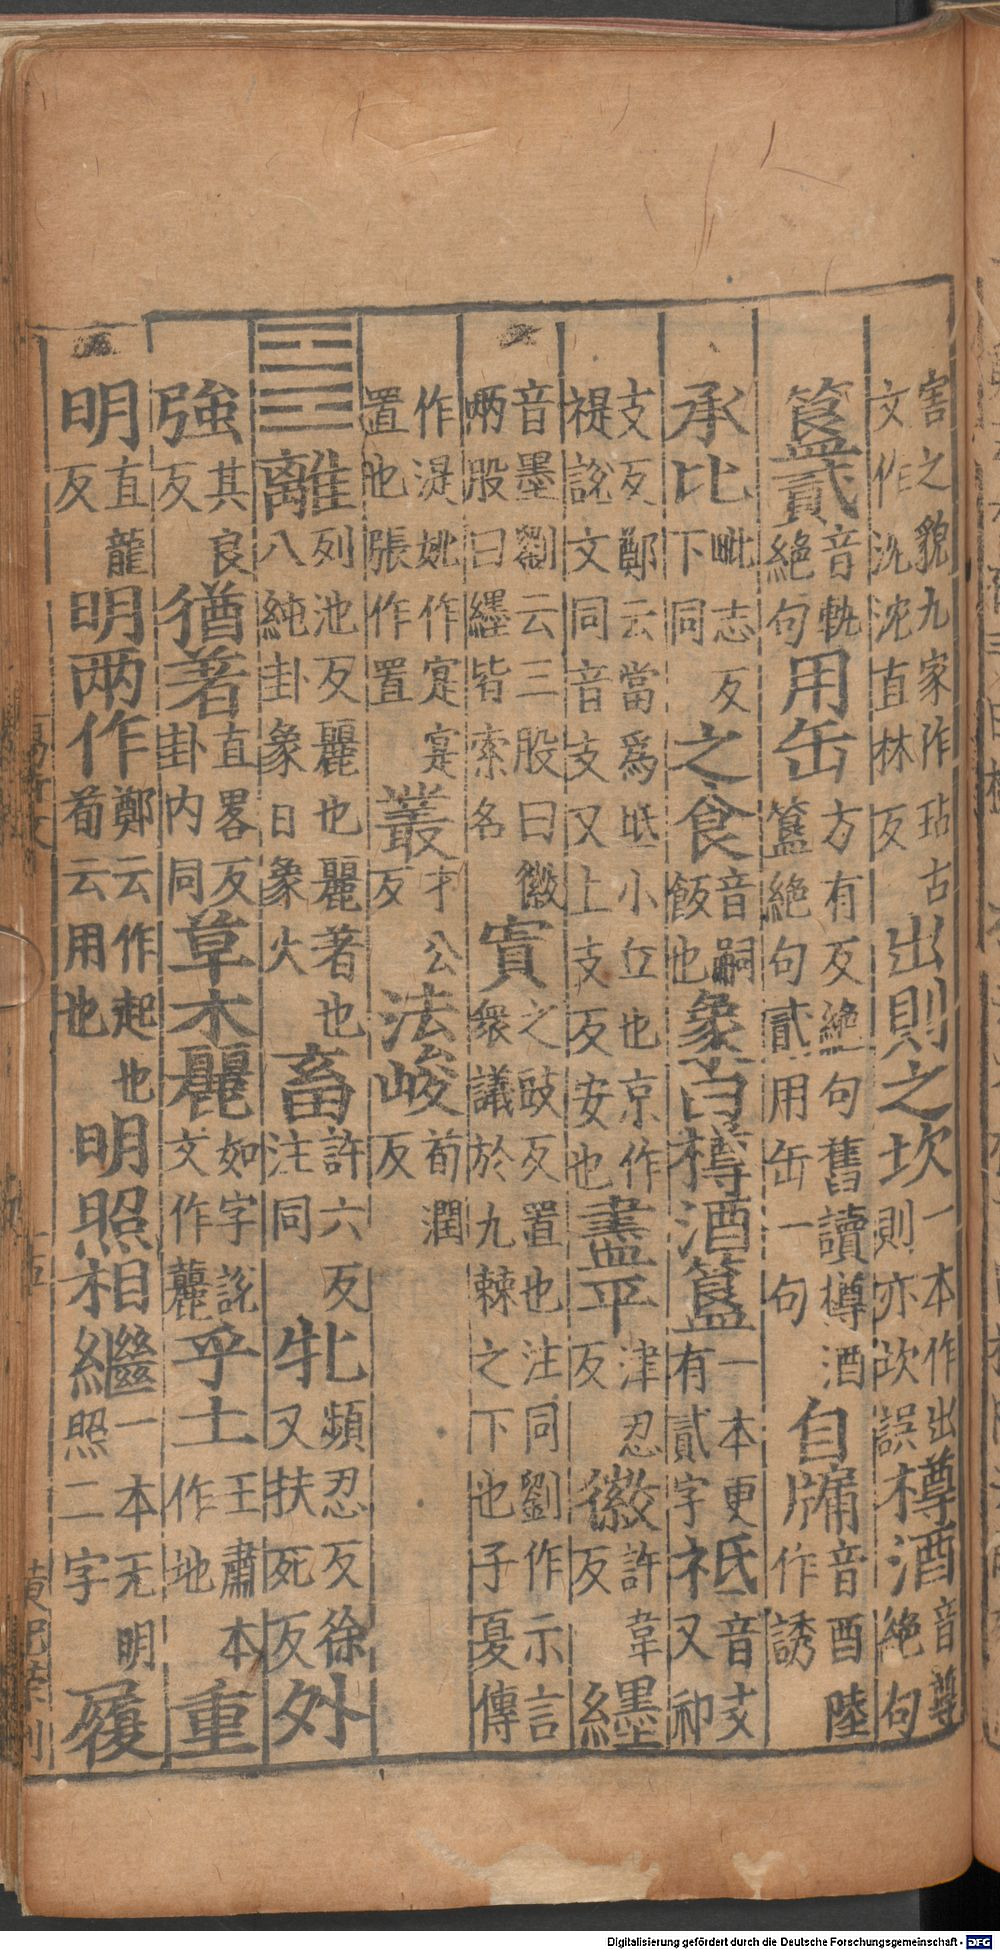 害之貌九家作玷古文作沈沈直林反出則之坎一本作出則亦坎誤樽酒音尊絶句
簋貳音軌絶句用缶方有反絶句舊讀樽酒簋絶句貳用缶一句自牖音酉陸作誘
承比毗志反下同之食音嗣飯也象曰樽酒簋一本更有貳字祗音支又祁
支反鄭云當爲坻小丘也京作禔說文同音支又上支反安也盡平津忍反徽許韋反纆
音墨劉云三股曰徽兩股曰纆皆索名寘之豉反置也注同劉作示言衆議於九棘之下也子夏傳
作湜姚作寔寔置也張作置叢才公反法峻荀潤反
䷝離列池反麗也麗著也八純卦象日象火畜許六反注同牝頻忍反徐又扶死反外
強其良反猶著直畧反卦内同草木麗如字說文作䕻乎土王肅本作地重
明直龍反明兩作鄭云作起也荀云用也明照相繼一本无明照二字履
Digitalisierung gefördert durch die Deutsche Forschungsgemeinschaft - DFG